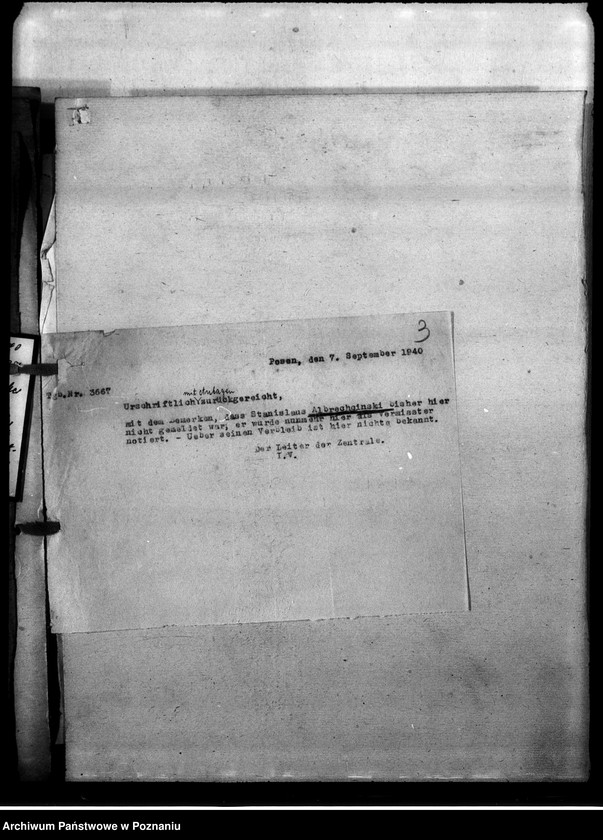 3
Posen, den 7. September 1940
Tgb.Nr. 3667
mit Anlagen
Urschriftlich zurückgereicht,
mit dem Bemerken, dass Stanislaus Albrechcinski bisher hier
nicht gemeldet war, er wurde nunmehr hier als Vermisster
notiert. - Ueber seinen Verbleib ist hier nichts bekannt.
Der Leiter der Zentrale.
I.V.
Archiwum Państwowe w Poznaniu